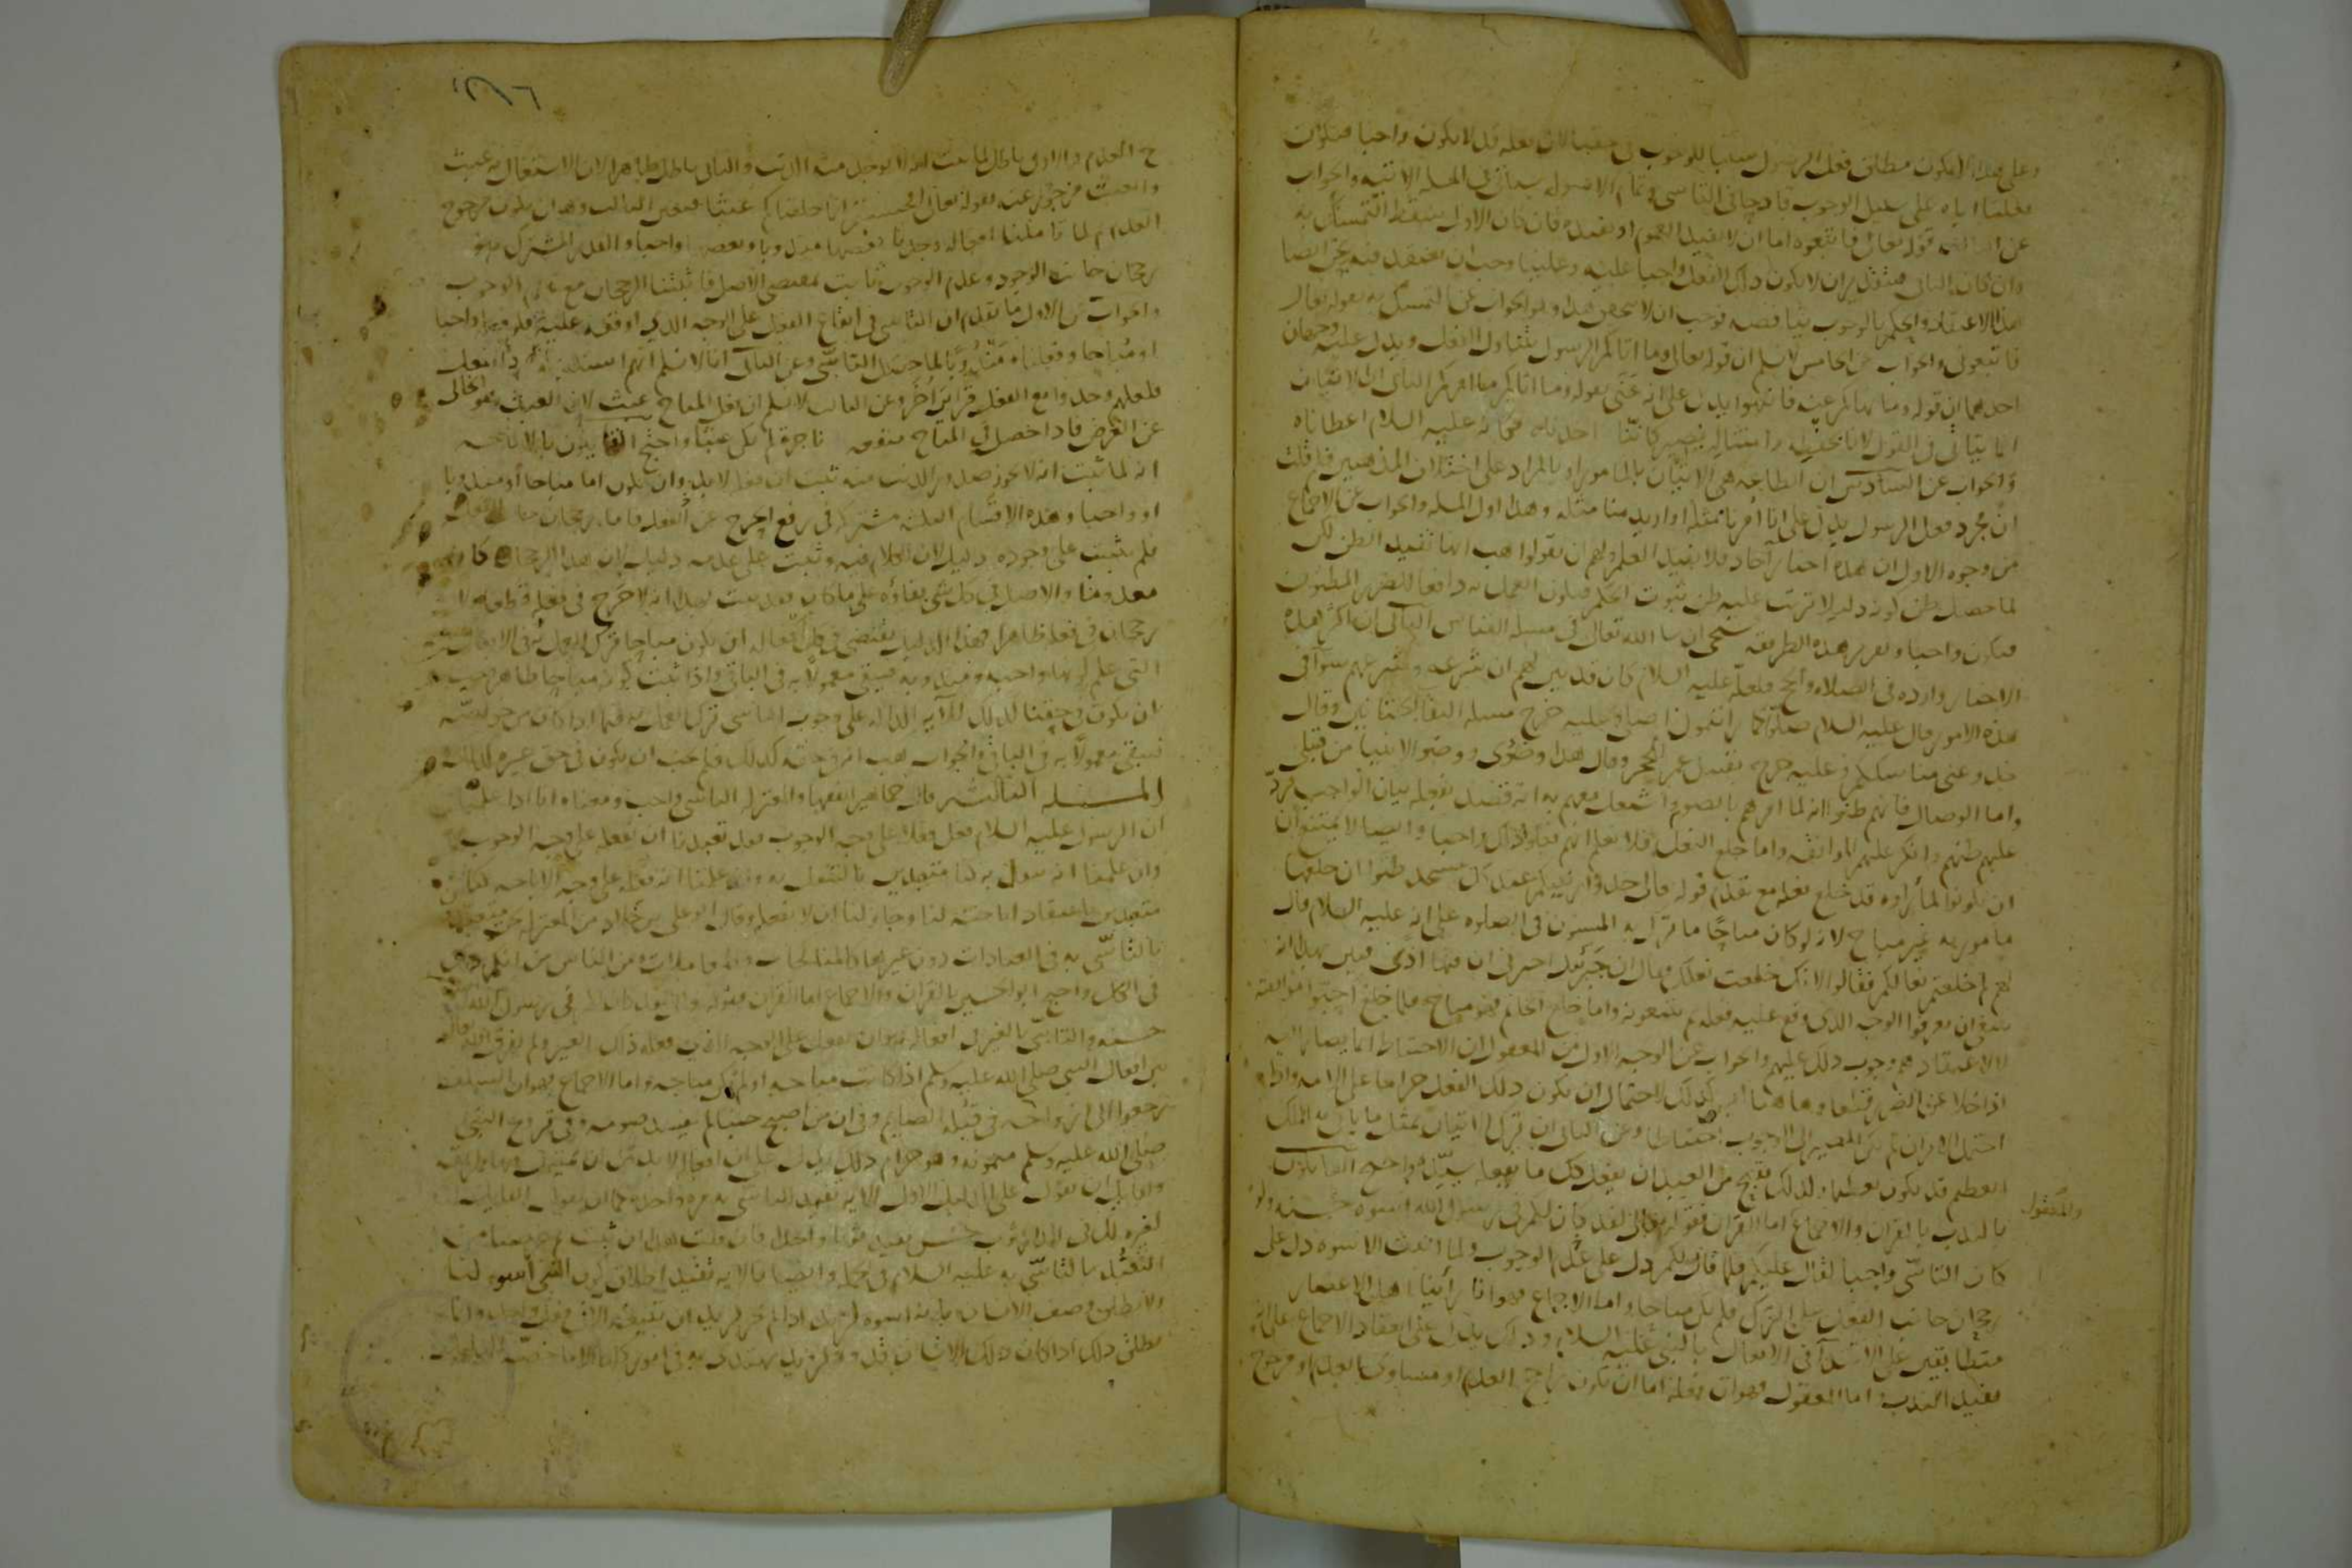 وعلى هذا لا يكون مطلق فعل الرسول سببا للوجوب في حقنا لان فعله قد لا يكون واجبا فيكون
فعلنا اياه على سبيل الوجوب قادحا في التاسي وتمام الاصول سياتي في المسلة الاتية والجواب
عن الثالث قوله تعالى فاتبعوه اما ان لا يفيد العموم او يفيده فان كان الاول سقط التمسك به
وان كان الثاني فبتقدير ان لا يكون ذلك الفعل واجبا عليه وعلينا وجب ان نعتقد فيه ايضا
هذا الاعتقاد والحكم بالوجوب يناقضه فوجب ان لا يتحقق هذا وهو الجواب عن التمسك به بقوله تعالى
فاتبعوني والجواب عن الخامس لا نسلم ان قوله تعالى وما اتاكم الرسول يتناول الفعل ويدل عليه وجهان
احدهما ان قوله وما نهاكم عنه فانتهوا يدل على انه عنى بقوله وما اتاكم ما امركم الثاني ان الاتيان
انما يتاتى في القول لانا نحفظه وامتثاله يصير كاننا اخذناه فكانه عليه السلام اعطاناه
والجواب عن السادس ان الطاعة هي الاتيان بالمامور او بالمراد على اختلاف المذهبين فلم قلت
ان مجرد فعل الرسول يدل على انا امرنا بمثله او اريد منا مثله وهذا اول المسلة والجواب عن الاجماع
من وجوه الاول ان هذه اخبار آحاد فلا تفيد العلم ولهم ان يقولوا هب انها تفيد الظن لكن
لما حصل ظن كونه دليلا ترتب عليه ظن ثبوت الحكم فيكون العمل به دافعا للضرر المظنون
فيكون واجبا وتقرير هذه الطريقة سيجي ان شا الله تعالى في مسلة القياس الثاني ان اكثر هذه
الاخبار واردة في الصلاة والحج فلعله عليه السلام كان قد بين لهم ان شرعه وشرعهم سوآ في
هذه الامور قال عليه السلام صلوا كما رايتموني اصلي وعليه خرج مسلة التقا الختانين وقال
خذوا عني مناسككم وعليه خرج تقبيل عمر الحجر وقال هذا وضوى ووضو الانبيا من قبلي
واما الوصال فانهم ظنوا انه لما امرهم بالصوم واشتغل معهم به انه قصد بفعله بيان الواجب فرد
عليهم ظنهم وانكر عليهم الموافقة واما خلع النعل فلا نعلم انهم فعلوا ذلك واجبا وايضا لا يمتنع ان
يكونوا لما راوه قد خلع نعله مع تقدم قوله تعالى خذوا زينتكم عند كل مسجد ظنوا ان خلعها
مامور به غير مباح لانه لو كان مباحا ما ترك به المسنون في الصلوة على انه عليه السلام قال
لهم لم خلعتم نعالكم فقالوا لانك خلعت نعلك فقال ان جبريل اخبرني ان فيها اذى فبين بهذا انه
ينبغي ان يعرفوا الوجه الذي وقع عليه فعله ثم يتبعونه واما خلع الخاتم فهو مباح فلما خلع احبوا موافقته
لا الاعتقادهم وجوب ذلك عليهم والجواب عن الوجه الاول من المعقول ان الاحتياط انما يصار اليه
اذا خلا عن الضرر قطعا وهاهنا ليس كذلك لاحتمال ان يكون ذلك الفعل حراما على الامة واذا
احتمل الامران لم يكن المصير الى الوجوب احتياطا وعن الثاني ان ترك الاتيان بمثل ما ياتي به الملك
العظيم قد يكون تعظيما ولذلك يقبح من العبد ان يفعل كل ما يفعله سيده واحتج القايلون
بالندب بالقران والاجماع والمعقول اما القران فقوله تعالى لقد كان لكم في رسول الله اسوة حسنة ولو
كان التاسي واجبا لقال عليكم فلما قال لكم دل على عدم الوجوب ولما اثبت الاسوة دل على
رجحان جانب الفعل على الترك فلم يكن مباحا واما الاجماع فهو انا راينا اهل الاعصار
متطابقين على الاقتدا في الافعال بالنبي عليه السلام وذلك يدل على انعقاد الاجماع على انه
يفيد الندب اما المعقول فهو ان فعله اما ان يكون راجح العدم او مساوي العدم او مرجوح
والمعقول
العدم والاول باطل لما ثبت انه لا يوجد منه الذنب والثاني باطل ظاهرا لان الاشتغال به عبث
والعبث مزجور عنه بقوله تعالى افحسبتم انما خلقناكم عبثا فتعين الثالث وهو ان يكون مرجوح
العدم ثم لما تاملنا افعاله وجدنا بعضها مندوبا وبعضها واجبا والقدر المشترك هو
رجحان جانب الوجود وعدم الوجوب ثابت بمقتضى الاصل فاثبتنا الرجحان مع عدم الوجوب
والجواب عن الاول ما تقدم ان التاسي في ايقاع الفعل على الوجه الذي اوقعه عليه فلو فعله واجبا
او مباحا وفعلناه مندوبا لما حصل التاسي وعن الثاني انا لا نسلم انهم استدلوا بمجرد الفعل
فلعلهم وجدوا مع الفعل قراين اخر وعن الثالث لا نسلم ان فعل المباح عبث لان العبث هو الخالي
عن الغرض فاذا حصل في المباح منفعة ناجزة لم يكن عبثا واحتج القايلون بالاباحة
انه لما ثبت انه لا يجوز صدور الذنب منه ثبت ان فعله لا بد وان يكون اما مباحا او مندوبا
او واجبا وهذه الاقسام الثلثة مشتركة في رفع الحرج عن الفعل فاما رجحان الفعل
فلم يثبت على وجوده دليل لان الكلام فيه وثبت على عدمه دليل لان هذا الرجحان كان
معدوما والاصل في كل شي بقاؤه على ما كان فقد ثبت بهذا انه لا حرج في فعله قطعا ولا
رجحان في فعله ظاهرا فهذا الدليل يقتضي في كل افعاله ان يكون مباحا ترك العمل به في الافعال
التي علم كونها واجبة ومندوبة فيبقى معمولا به في الباقي واذا ثبت كونه مباحا ظاهرا وجب
ان يكون في حقنا كذلك للاية الدالة على وجوب التاسي ترك العمل به فيما اذا كان من خواصه
فيبقى معمولا به في الباقي والجواب هب انه في حقه كذلك فلم يجب ان يكون في حق غيره كذلك
المسلة الثالثة قال جماهير الفقها والمعتزلة التاسي واجب ومعناه انا اذا علمنا
ان الرسول عليه السلام فعل فعلا على وجه الوجوب فقد تعبدنا ان نفعله على وجه الوجوب
وان علمنا انه تنفل به كنا متعبدين بالتنفل به وان علمنا انه فعله على وجه الاباحة كنا
متعبدين باعتقاد اباحته لنا وجاز لنا ان نفعله وقال ابو علي بن خلاد من المعتزلة نحن متعبدون
بالتاسي به في العبادات دون غيرها كالمناكحات والمعاملات ومن الناس من انكر ذلك
في الكل واحتج ابو الحسين بالقران والاجماع اما القران فقوله لقد كان لكم في رسول الله اسوة
حسنة والتاسي بالغير في افعاله هو ان يفعل على الوجه الذي فعله ذلك الغير ولم يفرق الله تعالى
بين افعال النبي صلى الله عليه وسلم اذا كانت مباحة او لم تكن مباحة واما الاجماع فهو ان السلف
رجعوا الى ازواجه في قبلة الصايم وفي ان من اصبح جنبا لم يفسد صومه وفي تزوج النبي
صلى الله عليه وسلم ميمونة وهو حرام وذلك يدل على ان افعاله لا بد من ان يمتثل بها طريقه
ولقايل ان يقول على الدليل الاول الاية تفيد التاسي به مرة واحدة كما ان قول القايل
لغيره لك في الدار ثوب حسن يفيد ثوبا واحدا فان قلت هذا ان ثبت تم غرضنا من
التعبد بالتاسي به عليه السلام في الجملة وايضا فالاية تفيد اطلاق كون النبي اسوة لنا
ولا يطلق وصف الانسان بانه اسوة لزيد اذا لم يجز لزيد ان يتبعه الا في فعل واحد وانما
يطلق ذلك اذا كان ذلك الانسان قدوة لزيد يهتدي به في اموره كلها الا ما خصه الدليل